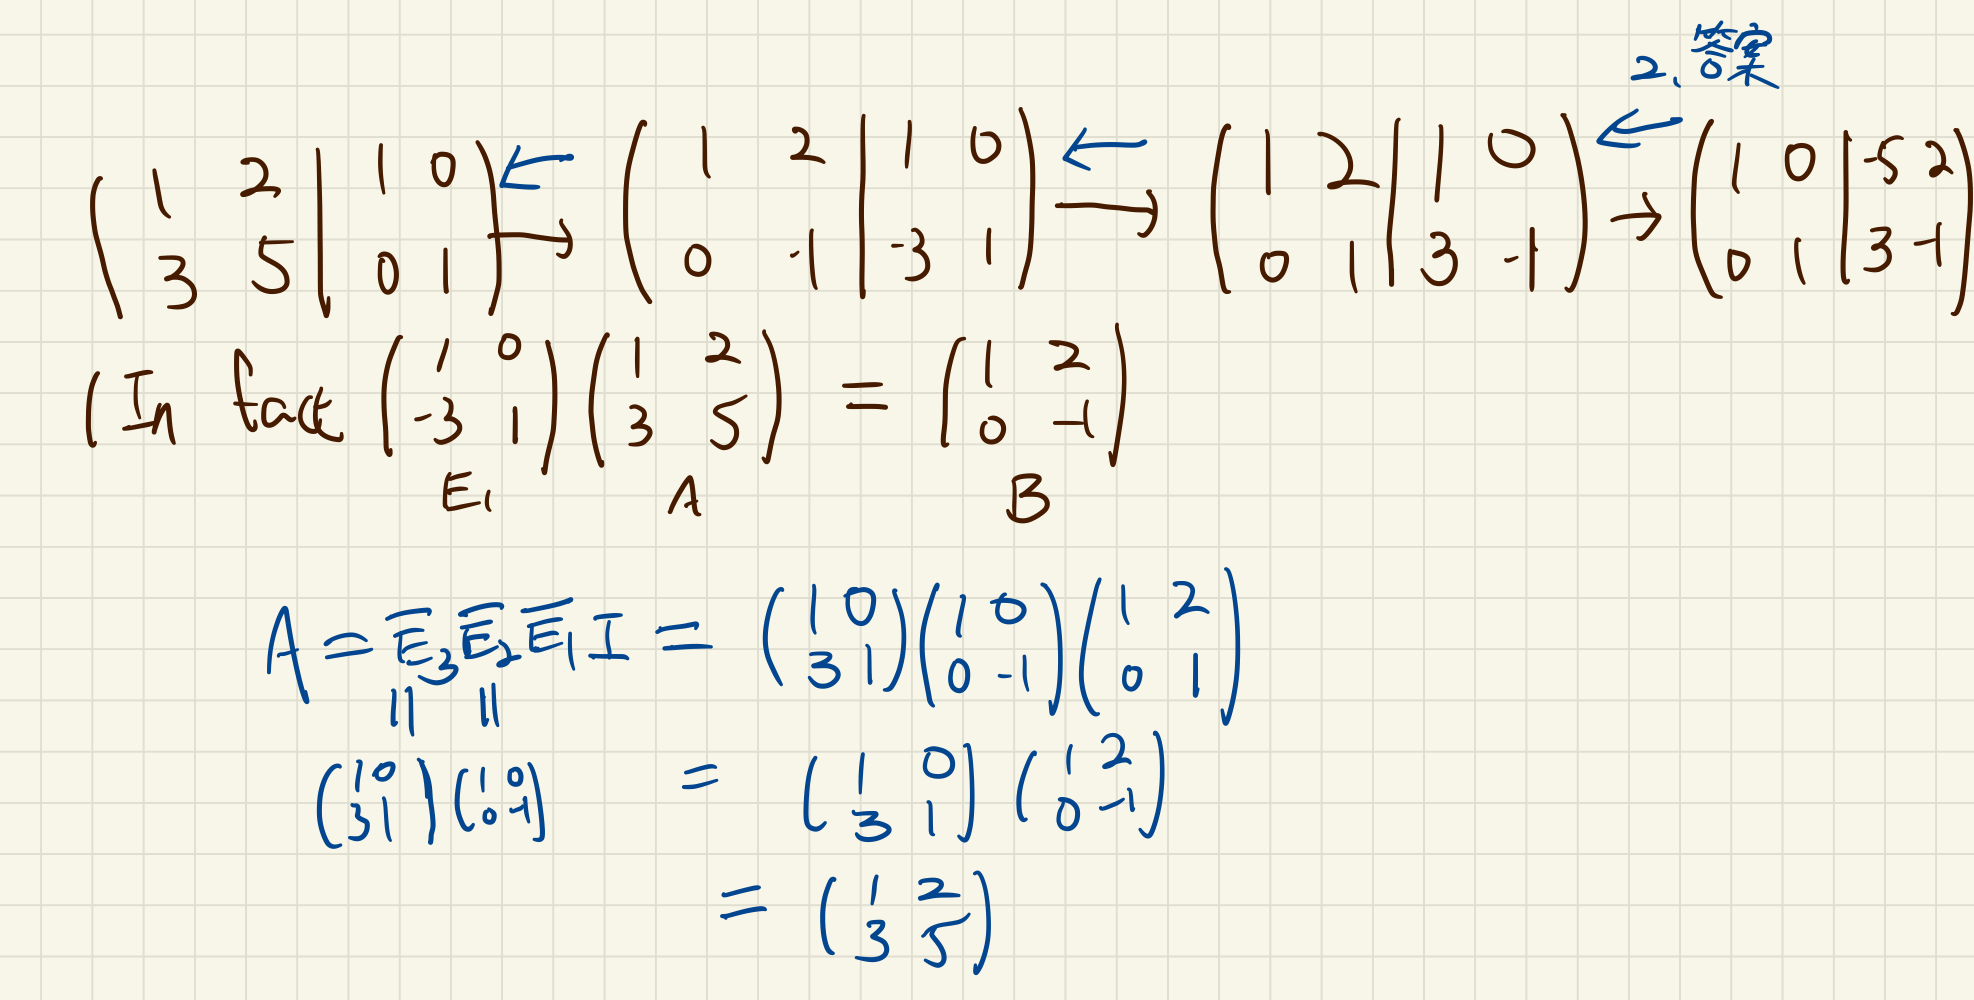 2、答案
(1 2 | 1 0; 3 5 | 0 1) ← → (1 2 | 1 0; 0 -1 | -3 1) ← → (1 2 | 1 0; 0 1 | 3 -1) ← → (1 0 | -5 2; 0 1 | 3 -1)
(In fact (1 0; -3 1) (1 2; 3 5) = (1 2; 0 -1)
E₁ A B
A = E̅₃ E̅₂ E̅₁ I = (1 0; 3 1) (1 0; 0 -1) (1 2; 0 1)
|| ||
(1 0; 3 1) (1 0; 0 -1) = (1 0; 3 1) (1 2; 0 -1)
= (1 2; 3 5)